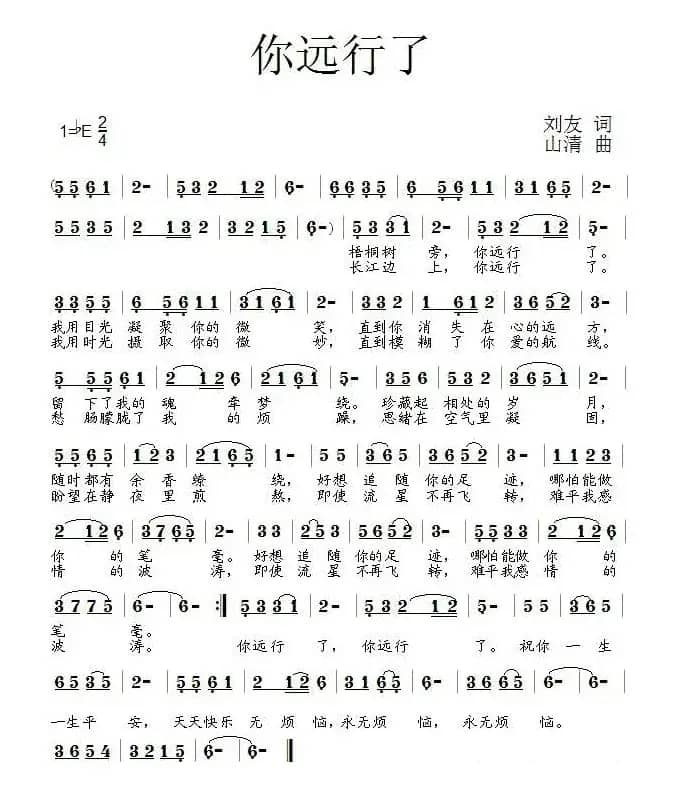 你远行了
1=♭E 2/4
刘友 词
山清 曲
(5561 | 2- | 532 12 | 6- | 6635 | 6 5611 | 3165 | 2- |
5535 | 2 132 | 3215 | 6-) | 5331 | 2- | 532 12 | 5- |
梧桐树 旁， 你远行 了。
长江边 上， 你远行 了。
3355 | 6 5611 | 3161 | 2- | 332 | 1 612 | 3652 | 3- |
我用目光 凝聚你的微 笑， 直到你 消失在 心的远 方，
我用时光 摄取你的微 妙， 直到模 糊了你 爱的航 线。
5 5561 | 2 126 | 2161 | 5- | 356 | 5 516 | 365 | 3- |
留 下了我的 魂 牵梦 绕。 珍藏起 相处的岁 月，
愁 肠朦胧了 我 的烦 躁， 思绪在 空气里凝 固，
5565 | 123 | 2165 | 1- | 223 | 565 | 3652 | 3- | 1123 |
随时都有 余香缭 绕， 好想 追随 你的足 迹， 哪怕能做
盼望在静 夜里煎 熬， 即使 流星 不再飞 转， 难平我感
2 126 | 3765 | 2- | 33 | 253 | 5652 | 3- | 5533 | 2 126 |
你 的 笔 毫。 好想 追随 你的足 迹， 哪怕能做 你 的
情 的 波 涛， 即使 流星 不再飞 转， 难平我感 情 的
3775 | 6- | 6- :| 5331 | 2- | 532 12 | 6- | 55 | 5 35 |
笔 毫。
波 涛。 你远行 了， 你远行 了。 祝你 一生
6535 | 2- | 5561 | 2 12 | 6- | 3165 | 6- | 5612 | 3- |
一生平 安， 天天快乐 无 烦 恼， 永无烦 恼， 永无烦 恼。
3654 | 3215 | 6- | 6- ‖